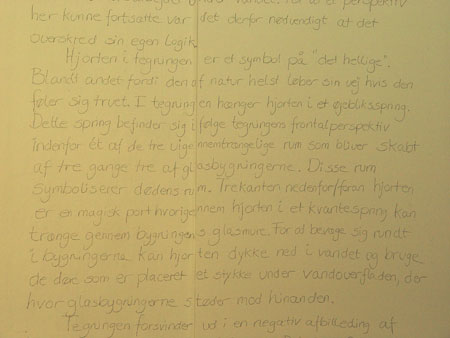 her kunne fortsætte var det derfor nødvendigt at det
overskred sin egen logik.
Hjorten i tegningen er et symbol på "det hellige".
Blandt andet fordi den af natur helst løber sin vej hvis den
føler sig truet. I tegningen hænger hjorten i et øjebliksspring.
Dette spring befinder sig ifølge tegningens frontalperspektiv
indenfor ét af de tre uigennemtrængelige rum som bliver skabt
af tre gange tre af glasbygningerne. Disse rum
symboliserer dødens rum. Trekanten nedenfor/foran hjorten
er en magisk port hvorigennem hjorten i et kvantespring kan
trænge gennem bygningens glasmure. For at bevæge sig rundt
i bygningerne kan hjorten dykke ned i vandet og bruge
de døre som er placeret et stykke under vandoverfladen, der
hvor glasbygningerne støder mod hinanden.
Tegningen forsvinder ud i en negativ afbilledning af